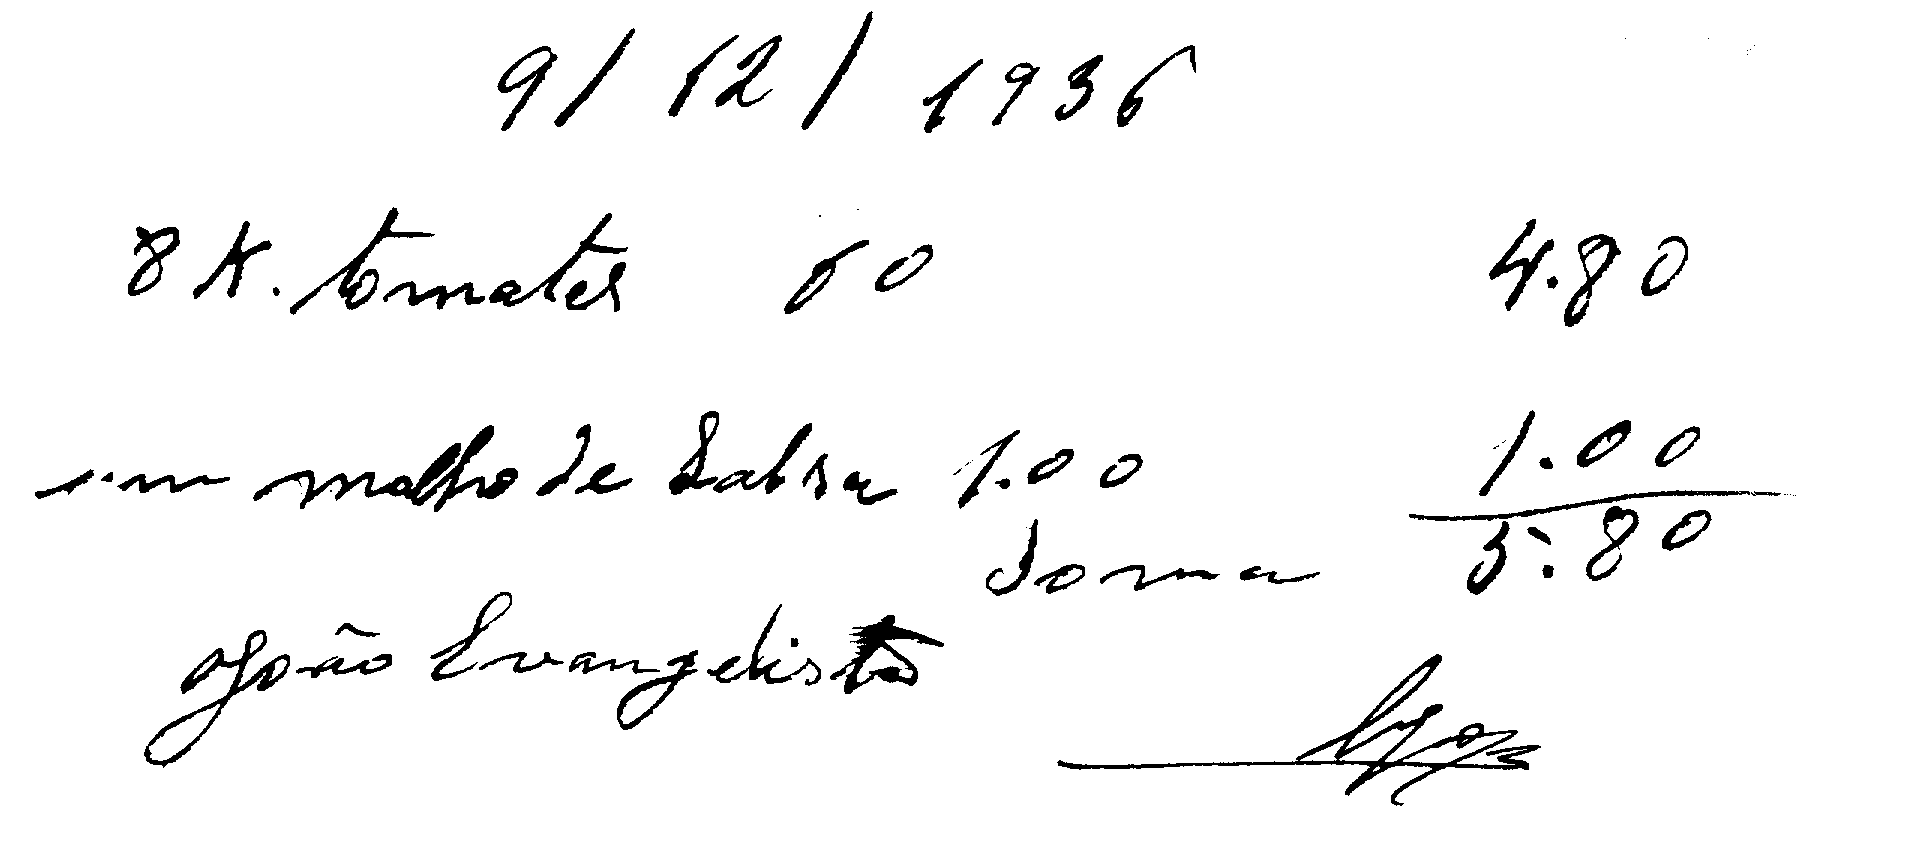 9/12/1936
8 K. tomates 60 4.80
um molho de Salsa 1.00 1.00
Soma 5.80
João Evangelista